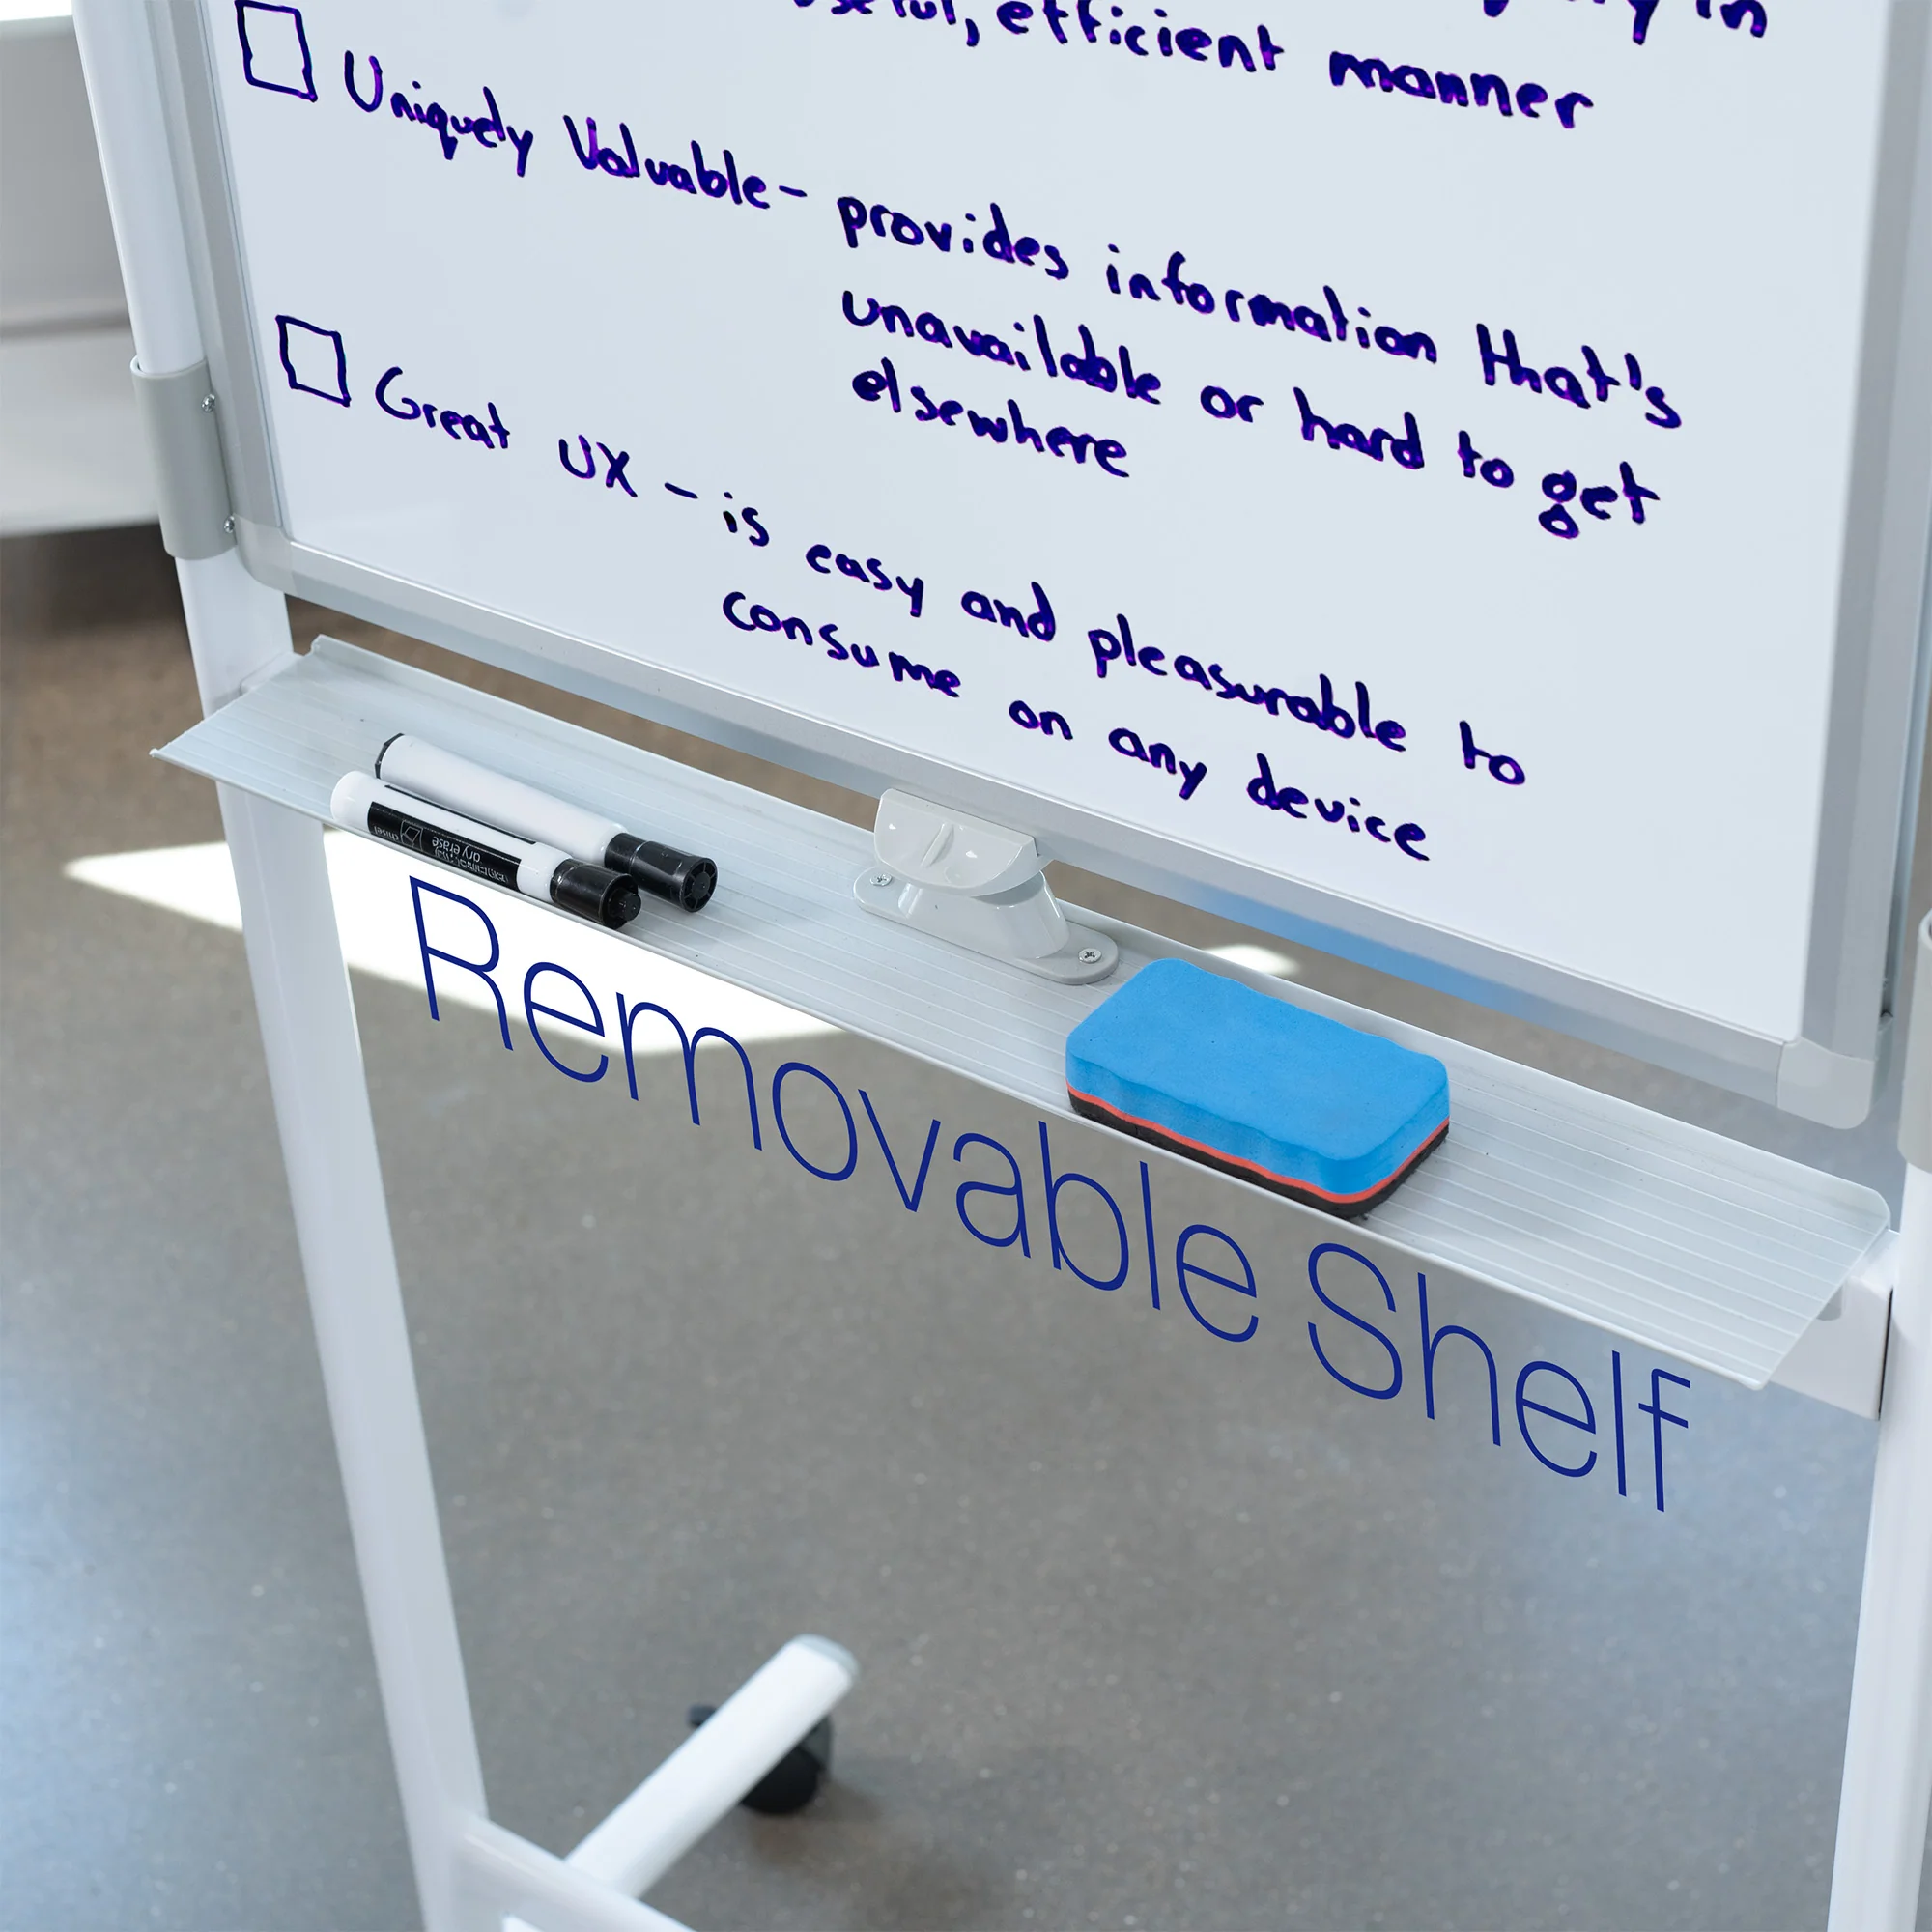 in
efficient manner
Uniquely Valuable - provides information that's
unavailable or hard to get
elsewhere
Great UX - is easy and pleasurable to
consume on any device
dry erase
Removable Shelf